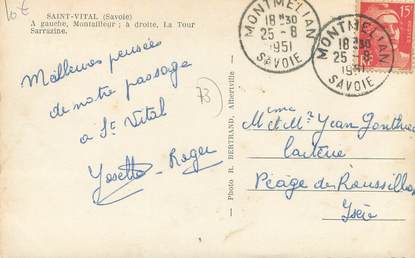 10€
SAINT-VITAL (Savoie)
A gauche, Montailleur ; à droite, La Tour
Sarrazine.
Meilleures pensées
de notre passage
a St Vital
Josette - Roger
73
Photo R. BERTRAND, Albertville
MONTMELIAN
18 H 30
25 - 8
1951
SAVOIE
MONTMELIAN
18 H 30
25 - 8
1951
SAVOIE
15F
Mme et Mr Jean Gonthier
Péage de Roussillon
Isère